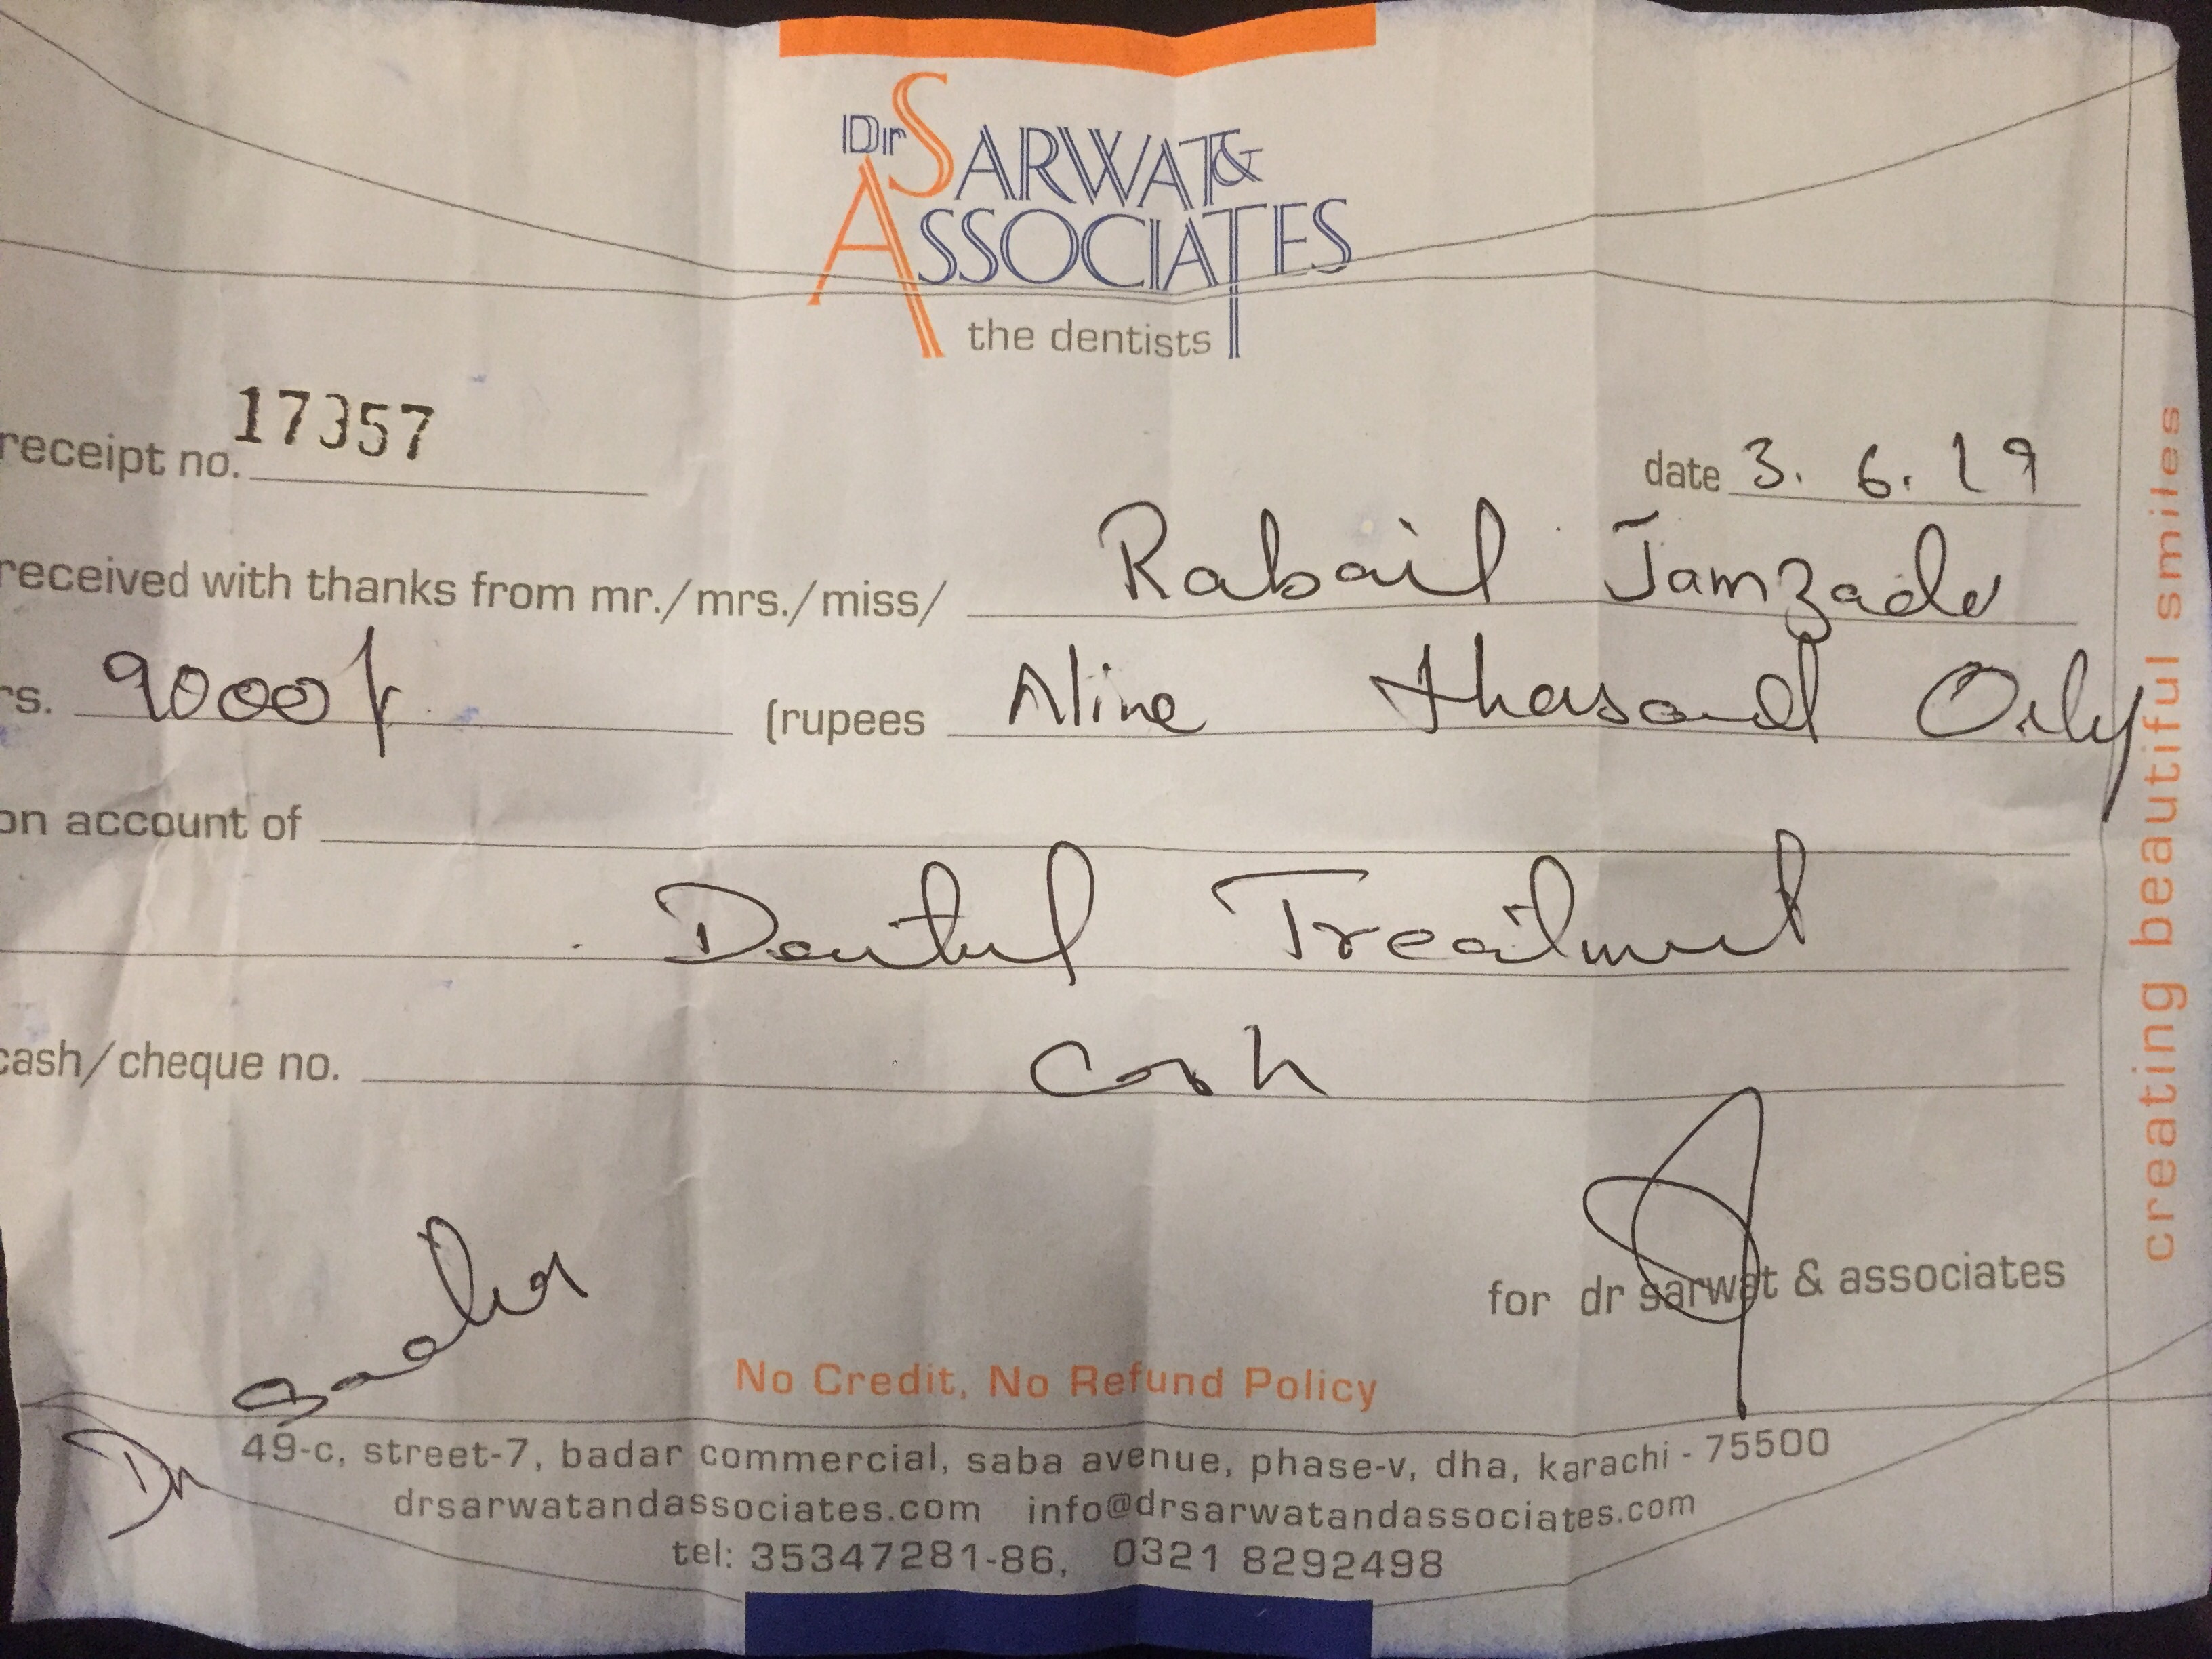 Dr SARWAT &
ASSOCIATES
the dentists
receipt no. 17357
date 3.6.19
received with thanks from mr./mrs./miss/ Rabail Jamzade
rs. 9000/- (rupees Nine thousand Only
on account of
Dental Treatment
cash/cheque no. Cash
for dr sarwat & associates
Dr
No Credit, No Refund Policy
49-c, street-7, badar commercial, saba avenue, phase-v, dha, karachi - 75500
drsarwatandassociates.com info@drsarwatandassociates.com
tel: 35347281-86, 0321 8292498
creating beautiful smiles